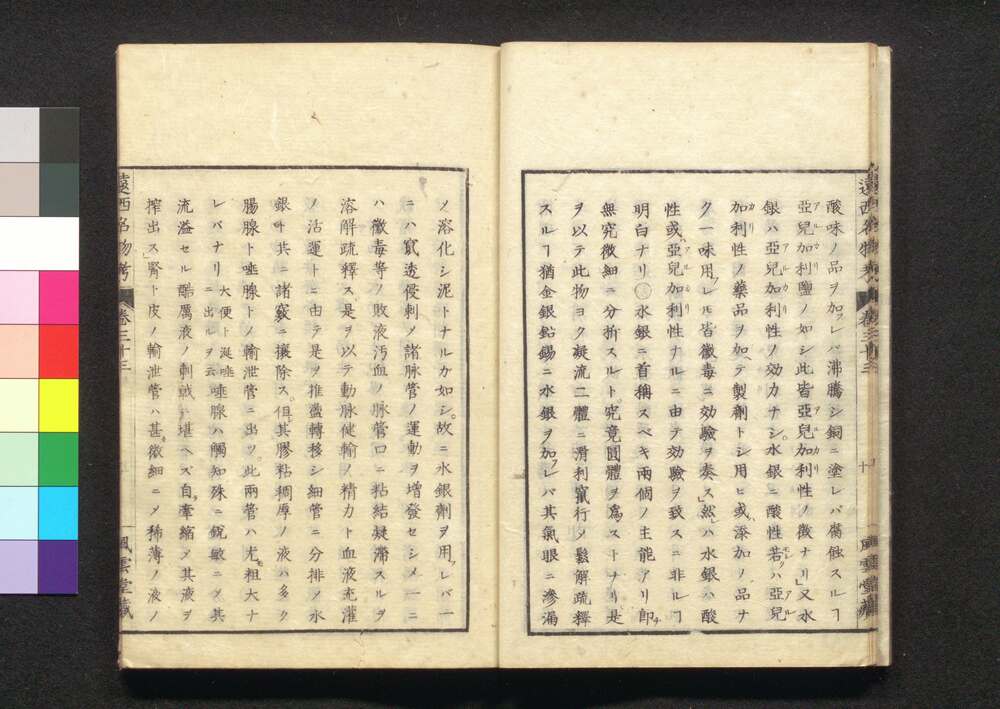 酸味ノ品ヲ加フレバ沸騰シ銅ニ塗レバ腐蝕スルヿ
亞兒加利鹽ノ如シ此皆亞兒加利性ノ徴ナリ」又水
銀ハ亞兒加利性ノ効力ナシ水銀ニ酸性若クハ亞兒
加利性ノ藥品ヲ加ヘテ製劑トシ用ヒ或ハ添加ノ品ナ
ク一味用フレル皆黴毒ニ効驗ヲ奏ス」然レハ水銀ハ酸
性或ハ亞兒加利性ナルニ由テ効驗ヲ致スニ非ルヿ
明白ナリ○水銀ニ首稱スベキ兩個ノ主能アリ即チ
無究微細ニ分拆スルト究竟圓體ヲ爲ストナリ是
ヲ以テ此物ヨク凝流二體ニ滑利竄行シ鬆解疏釋
スルヿ猶金銀鉛錫ニ水銀ヲ加フレバ其氣眼ニ滲漏
ノ溶化シ泥トナルカ如シ。故ニ水銀劑ヲ用フレバ一
ニハ竄透侵刺メ諸脉管ノ運動ヲ増發セシメ一ニ
ハ黴毒等ノ敗液汚血ノ脉管口ニ粘結凝滯スルヲ
溶解疏釋ス是ヲ以テ動脉健輸ノ精力ト血液充灌
ノ活運トニ由テ是ヲ推盪轉移シ細管ニ分排ノ水
銀ト共ニ諸竅ニ攘除ス。但其膠粘稠厚ノ液ハ多ク
腸腺ト唾腺トノ輸泄管ニ出ツ。此兩管ハ尤モ粗大ナ
レバナリ 大便ト涎唾ニ出ルヲ云 唾腺ハ觸知殊ニ鋭敏ニメ其
流溢セル酷厲液ノ刺戟ニ堪ヘズ自ラ牽縮メ其液ヲ
搾出ス」腎ト皮ノ輸泄管ハ甚タ微細ニメ稀薄ノ液ノ
遠西名物考 卷三十三
風雲堂藏